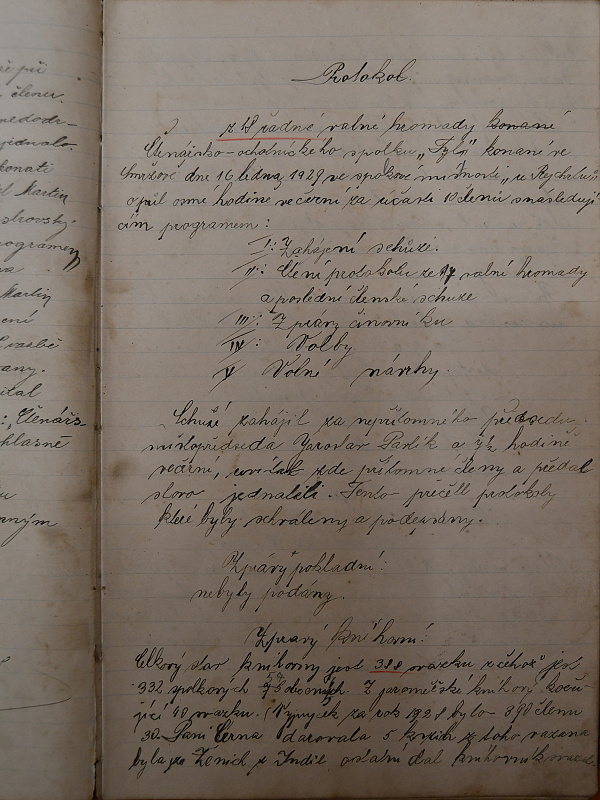 ší při
člener.
nedodr-
jednalo.
konati
Martin
strovský
rogramem
va
Martin
ení
vazbě
vany.
ital
: Čtenářs
hlasně
u
anným
Protokol.
z 18 řádné valné hromady konané
Čtenářsko-ochotnického spolku „Tyl" konané ve
Smržově dne 16 ledna 1929 ve spolkové místnosti „u Rychterů"
o půl osmé hodině večerní za účasti 10 členů s následují
cím programem:
I: Zahájení schůze.
II: Čtení protokolu ze 17 valní hromady
a poslední členské schůze
III: Zprávy činovníků
IV: Volby
V Volné návrhy.
Schůzi zahájil za nepřítomného předsedu,
místopředseda Jaroslav Pavlík a 7½ hodině
večerní, uvítal zde přítomné členy a předal
slovo jednateli. Tento přečetl protokoly
které byly schváleny a podepsány.
Zprávy pokladní:
nebyly podány.
Zpravy knihovní:
Celkový stav knihovny jest 388 svazku z čehož jest
332 spolkových 5 obecných. Z jaroměřské knihovny kočů-
jící 48 svazku. Výpujček za rok 1928 bylo 390 členu
30. Paní Černa darovala 5 knih z toho vazana
byla Ženich z Indií ostatní dal knihovník